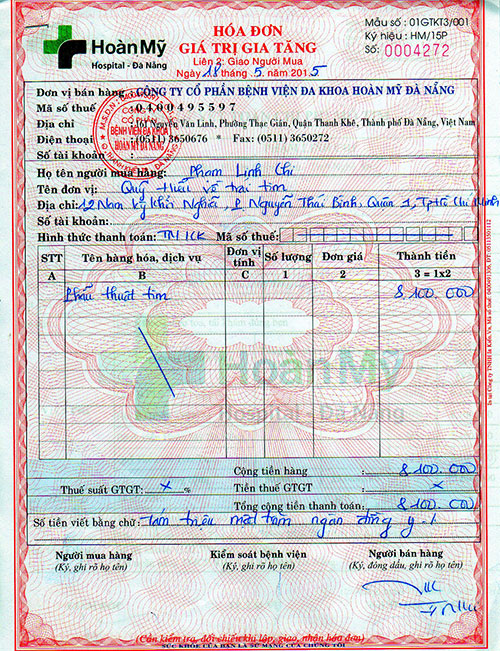 Hoàn Mỹ
Hospital - Đà Nẵng
HÓA ĐƠN
GIÁ TRỊ GIA TĂNG
Liên 2: Giao Người Mua
Ngày 18 tháng 5. năm 2015
Mẫu số : 01GTKT3/001
Ký hiệu : HM/15P
Số: 0004272
Đơn vị bán hàng: CÔNG TY CỔ PHẦN BỆNH VIỆN ĐA KHOA HOÀN MỸ ĐÀ NẴNG
Mã số thuế : 0400495597
Địa chỉ : 161 Nguyễn Văn Linh, Phường Thạc Gián, Quận Thanh Khê, Thành phố Đà Nẵng, Việt Nam
Điện thoại : (0511) 3650676 * Fax: (0511) 3650272
Số tài khoản:
CÔNG TY
CỔ PHẦN
BỆNH VIỆN ĐA KHOA
HOÀN MỸ ĐÀ NẴNG
Họ tên người mua hàng: Phạm Linh Chi
Tên đơn vị: Quỹ thấu về trái tim
Địa chỉ: 12 Nam kỳ khởi Nghĩa, P Nguyễn Thái Bình, Quận 1, Tp Hồ Chí Minh
Số tài khoản:
Hình thức thanh toán: TM/CK Mã số thuế:
STT Tên hàng hóa, dịch vụ Đơn vị tính Số lượng Đơn giá Thành tiền
A B C 1 2 3 = 1x2
Phẫu thuật tim 8 100.000
Hoàn Mỹ
Hospital - Đà Nẵng
Cộng tiền hàng : 8 100.000
Thuế suất GTGT: x % Tiền thuế GTGT : x
Tổng cộng tiền thanh toán: 8 100.000
Số tiền viết bằng chữ: Tám triệu một trăm ngàn đồng y./.
Người mua hàng Kiểm soát bệnh viện Người bán hàng
(Ký, ghi rõ họ tên) (Ký, ghi rõ họ tên) (Ký, đóng dấu, ghi rõ họ tên)
(Cần kiểm tra, đối chiếu khi lập, giao, nhận hóa đơn)
SỨC KHỎE CỦA BẠN LÀ SỨ MẠNG CỦA CHÚNG TÔI